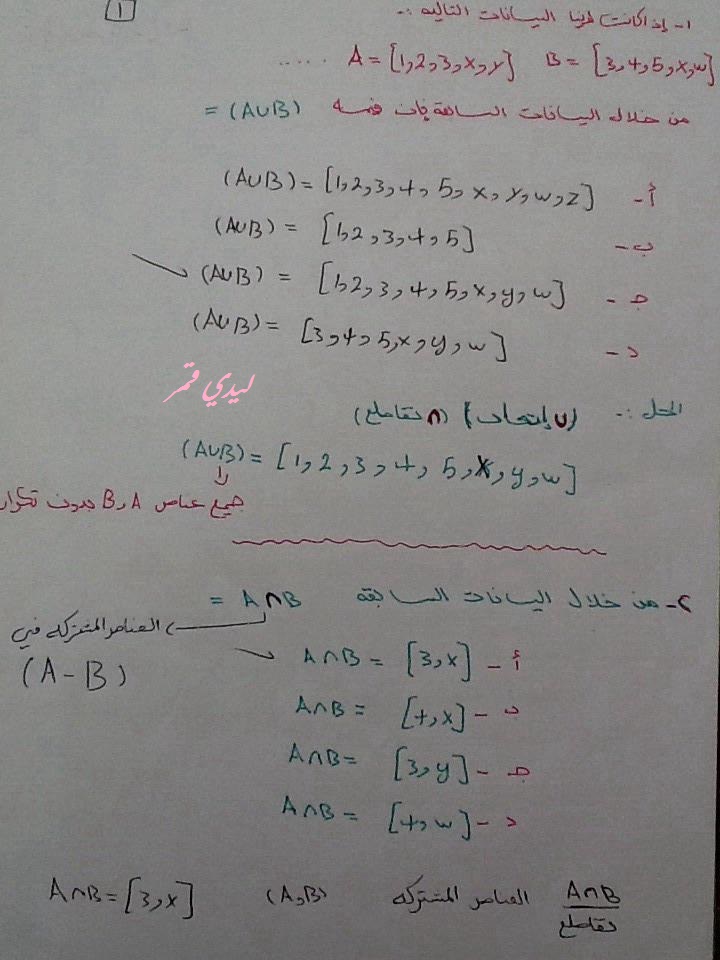 ١
١- إذا كانت لدينا البيانات التالية :-
A = [1,2,3,x,y] B = [3,4,5,x,w] .....
من خلال البيانات السابقة فإن قيمة (A∪B) =
أ- (A∪B) = [1,2,3,4,5,x,y,w,z]
ب- (A∪B) = [1,2,3,4,5]
جـ- (A∪B) = [1,2,3,4,5,x,y,w]
د- (A∪B) = [3,4,5,x,y,w]
ليدي قمر
الحل :- (∪ إتحاد) (∩ تقاطع)
(A∪B) = [1,2,3,4,5,x,y,w]
جميع عناصر A و B بدون تكرار
٢- من خلال البيانات السابقة A∩B =
العناصر المشتركة في
(A - B)
أ- A∩B = [3,x]
ب- A∩B = [4,x]
جـ- A∩B = [3,y]
د- A∩B = [4,w]
A∩B تقاطع العناصر المشتركة (A,B) A∩B = [3,x]